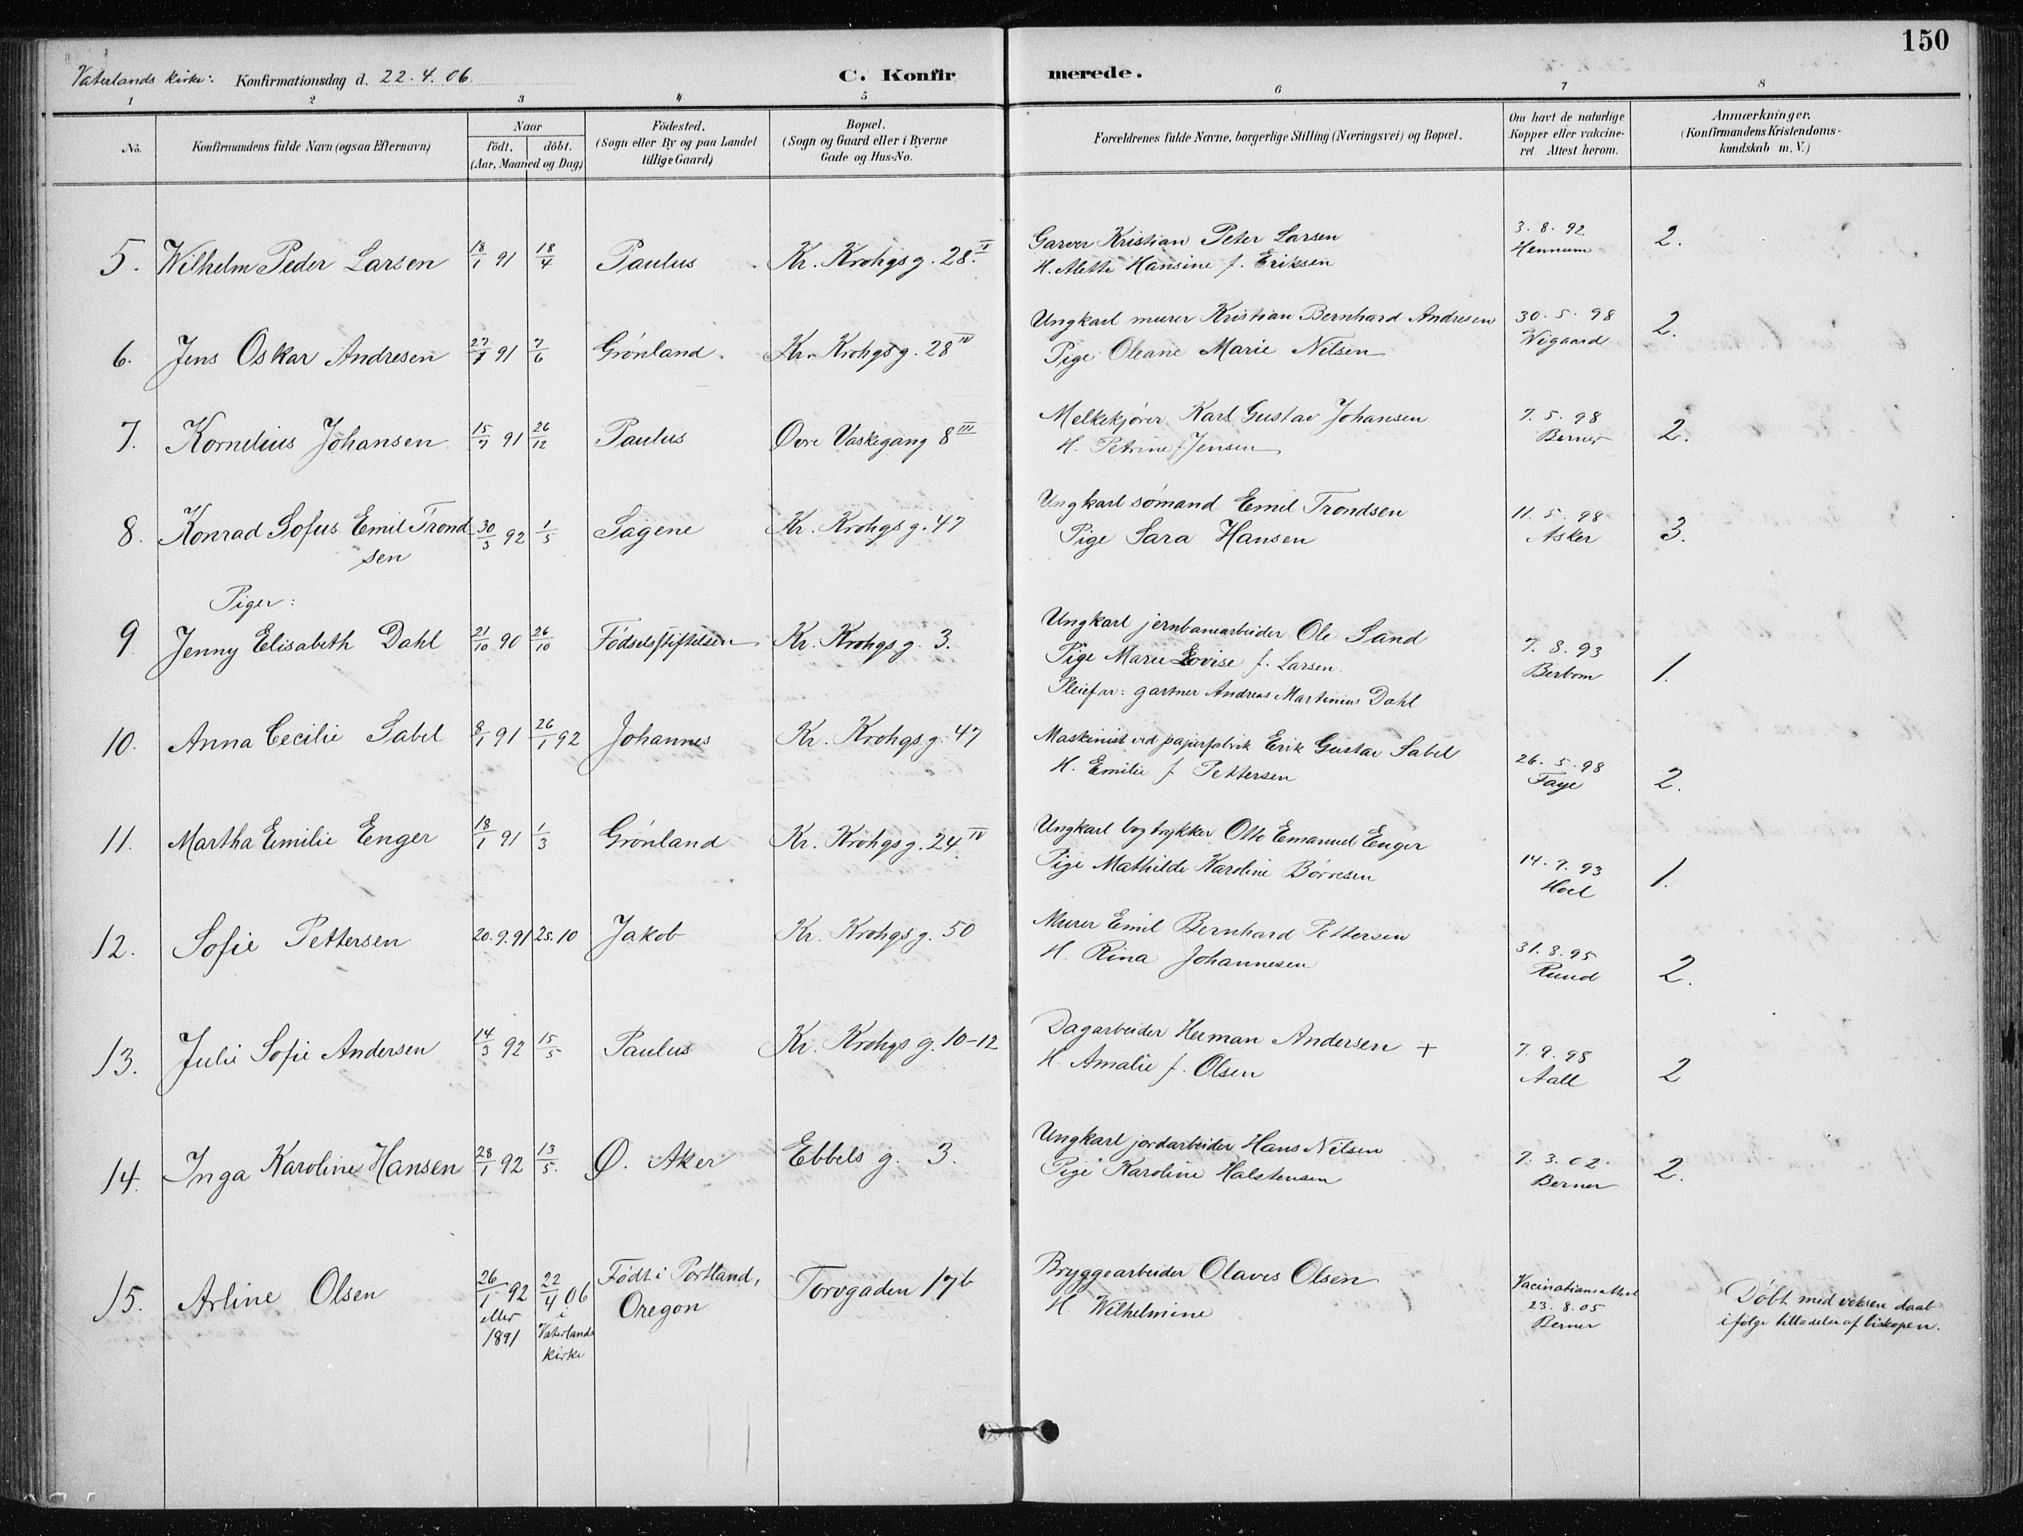 150
Vaterlands kirke: Konfirmationsdag d. 22.4.06. C. Konfirmerede.
1 2 3 4 5 6 7 8
No. Konfirmandens fulde Navn (ogsaa Efternavn) Naar født. døbt. (Aar, Maaned og Dag) Fødested. (Sogn eller By og paa Landet tillige Gaard) Bopæl. (Sogn og Gaard eller i Byerne Gade og Hus-No. Forældrenes fulde Navne, borgerlige Stilling (Næringsvei) og Bopæl. Om havt de naturlige Kopper eller vakcineret. Attest herom. Anmærkninger. (Konfirmandens Kristendomskundskab m. V.)
5. Wilhelm Peder Larsen 18/1 91 18/4 Paulus Kr. Krohgs g. 28 IV Garver Kristian Peter Larsen 3.8.92 2.
H. Mette Hansine f. Eriksen Hennum
6. Jens Oskar Andresen 27/1 91 7/6 Grønland. Kr. Krohgs g. 28 IV Ungkarl murer Kristian Bernhard Andresen 30.5.98 2.
Pige Oleane Marie Nilsen Wigaard
7. Kornelius Johansen 15/7 91 26/12 Paulus Øvre Vaskegang 8 III Melkekjører Karl Gustav Johansen 7.5.98 2.
H. Petrine f. Jensen Berner
8. Konrad Sofus Emil Trond 30/3 92 1/5 Sagene Kr. Krohgs g. 47 Ungkarl sømand Emil Trondsen 11.5.98 3.
sen Pige Sara Hansen Asker
Piger:
9. Jenny Elisabeth Dahl 21/10 90 26/10 Fødselsstiftelsen Kr. Krohgs g. 3. Ungkarl jernbanearbeider Ole Sand 7.8.93 1.
Pige Marie Lovise f. Larsen Berbom
Pleiefar: gartner Andreas Martinius Dahl
10. Anna Cecilie Sabel 8/1 91 26/1 92 Johannes Kr. Krohgs g. 47 Maskinist ved papirfabrik Erik Gustav Sabel 26.5.98 2.
H. Emilie f. Pettersen Faye
11. Martha Emilie Enger 18/1 91 1/3 Grønland Kr. Krohgs g. 24 IV Ungkarl bogtrykker Otto Emanuel Enger 14.9.93 1.
Pige Mathilde Karoline Børresen Hoel
12. Sofie Pettersen 20.9.91 25.10 Jakob Kr. Krohgs g. 50 Murer Emil Bernhard Pettersen 31.8.95 2.
H. Rina Johannesen Ruud
13. Julie Sofie Andersen 14/3 92 15/5 Paulus Kr. Krohgs g. 10-12 Dagarbeider Herman Andersen + 7.9.98 2
H. Amalie f. Olsen Aall
14. Inga Karoline Hansen 28/1 92 13/5 Ø. Aker Ebbels g. 3. Ungkarl jordarbeider Hans Nilsen 7.3.02. 2.
Pige Karoline Halstensen Berner
15. Arline Olsen 26/1 92 eller 1891 22/4 06 i Vaterlands kirke Født i Portland, Oregon Torvgaden 17b Bryggearbeider Olaves Olsen Vacinationsattest 23.8.05 Berner Døbt med voksen daab
H. Wilhelmine ifølge tilladelse af biskopen.